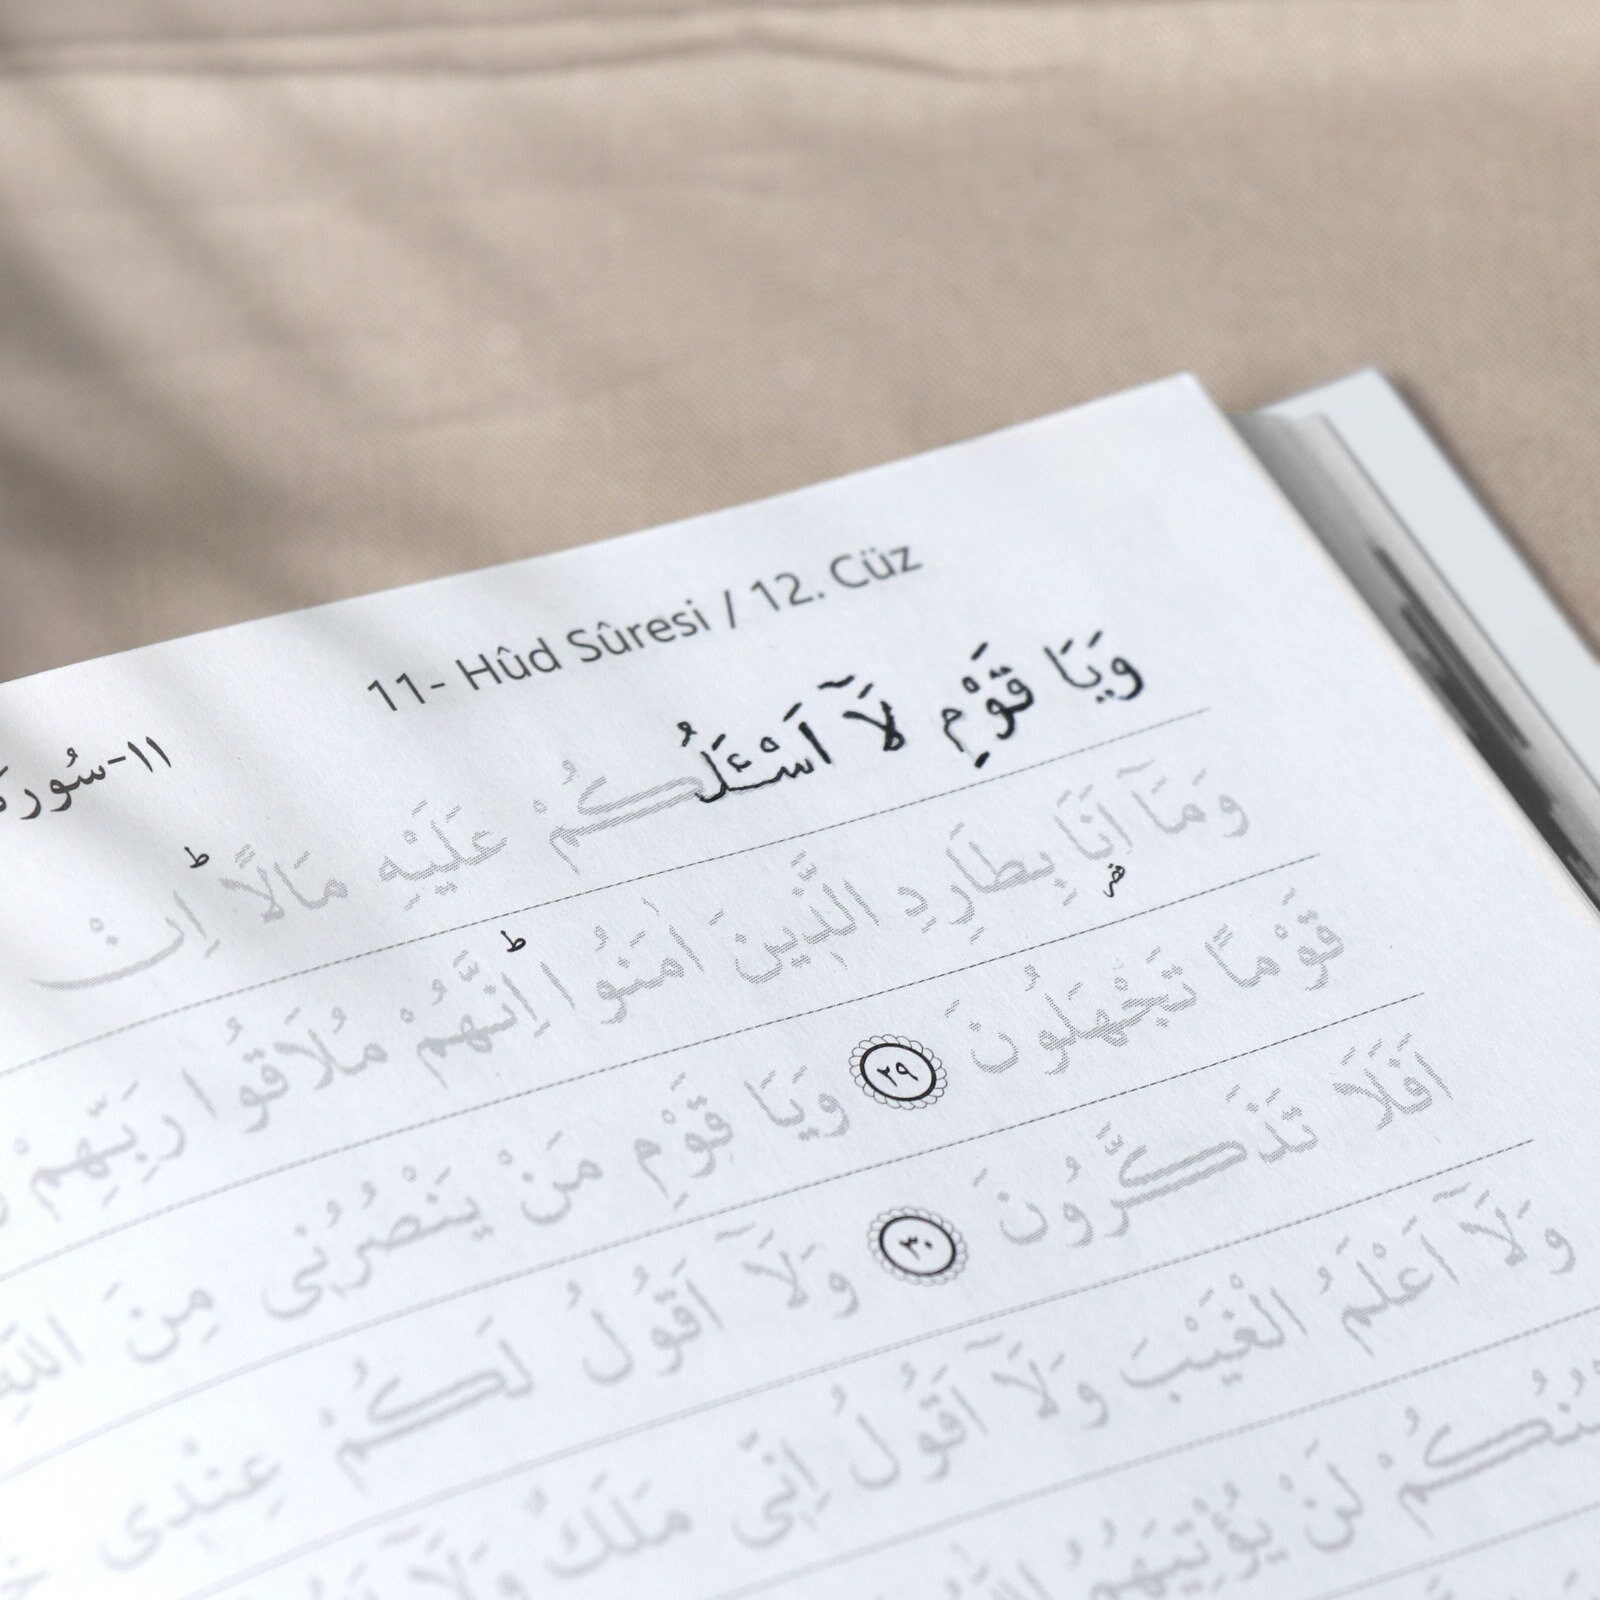 11- Hûd Sûresi / 12. Cüz
١١-سُورة
وَيَا قَوْمِ لَٓا اَسْـَٔلُكُمْ عَلَيْهِ مَالًاۜ اِنْ
وَمَٓا اَنَا۬ بِطَارِدِ الَّذ۪ينَ اٰمَنُواۜ اِنَّهُمْ مُلَاقُوا رَبِّهِمْ
قَوْمًا تَجْهَلُونَ ٢٩ وَيَا قَوْمِ مَنْ يَنْصُرُن۪ى مِنَ اللّٰهِ
اَفَلَا تَذَكَّرُونَ ٣٠ وَلَٓا اَقُولُ لَكُمْ عِنْد۪ى
وَلَٓا اَعْلَمُ الْغَيْبَ وَلَٓا اَقُولُ اِنّ۪ى مَلَكٌ وَلَٓا
لَنْ يُؤْتِيَهُمُ